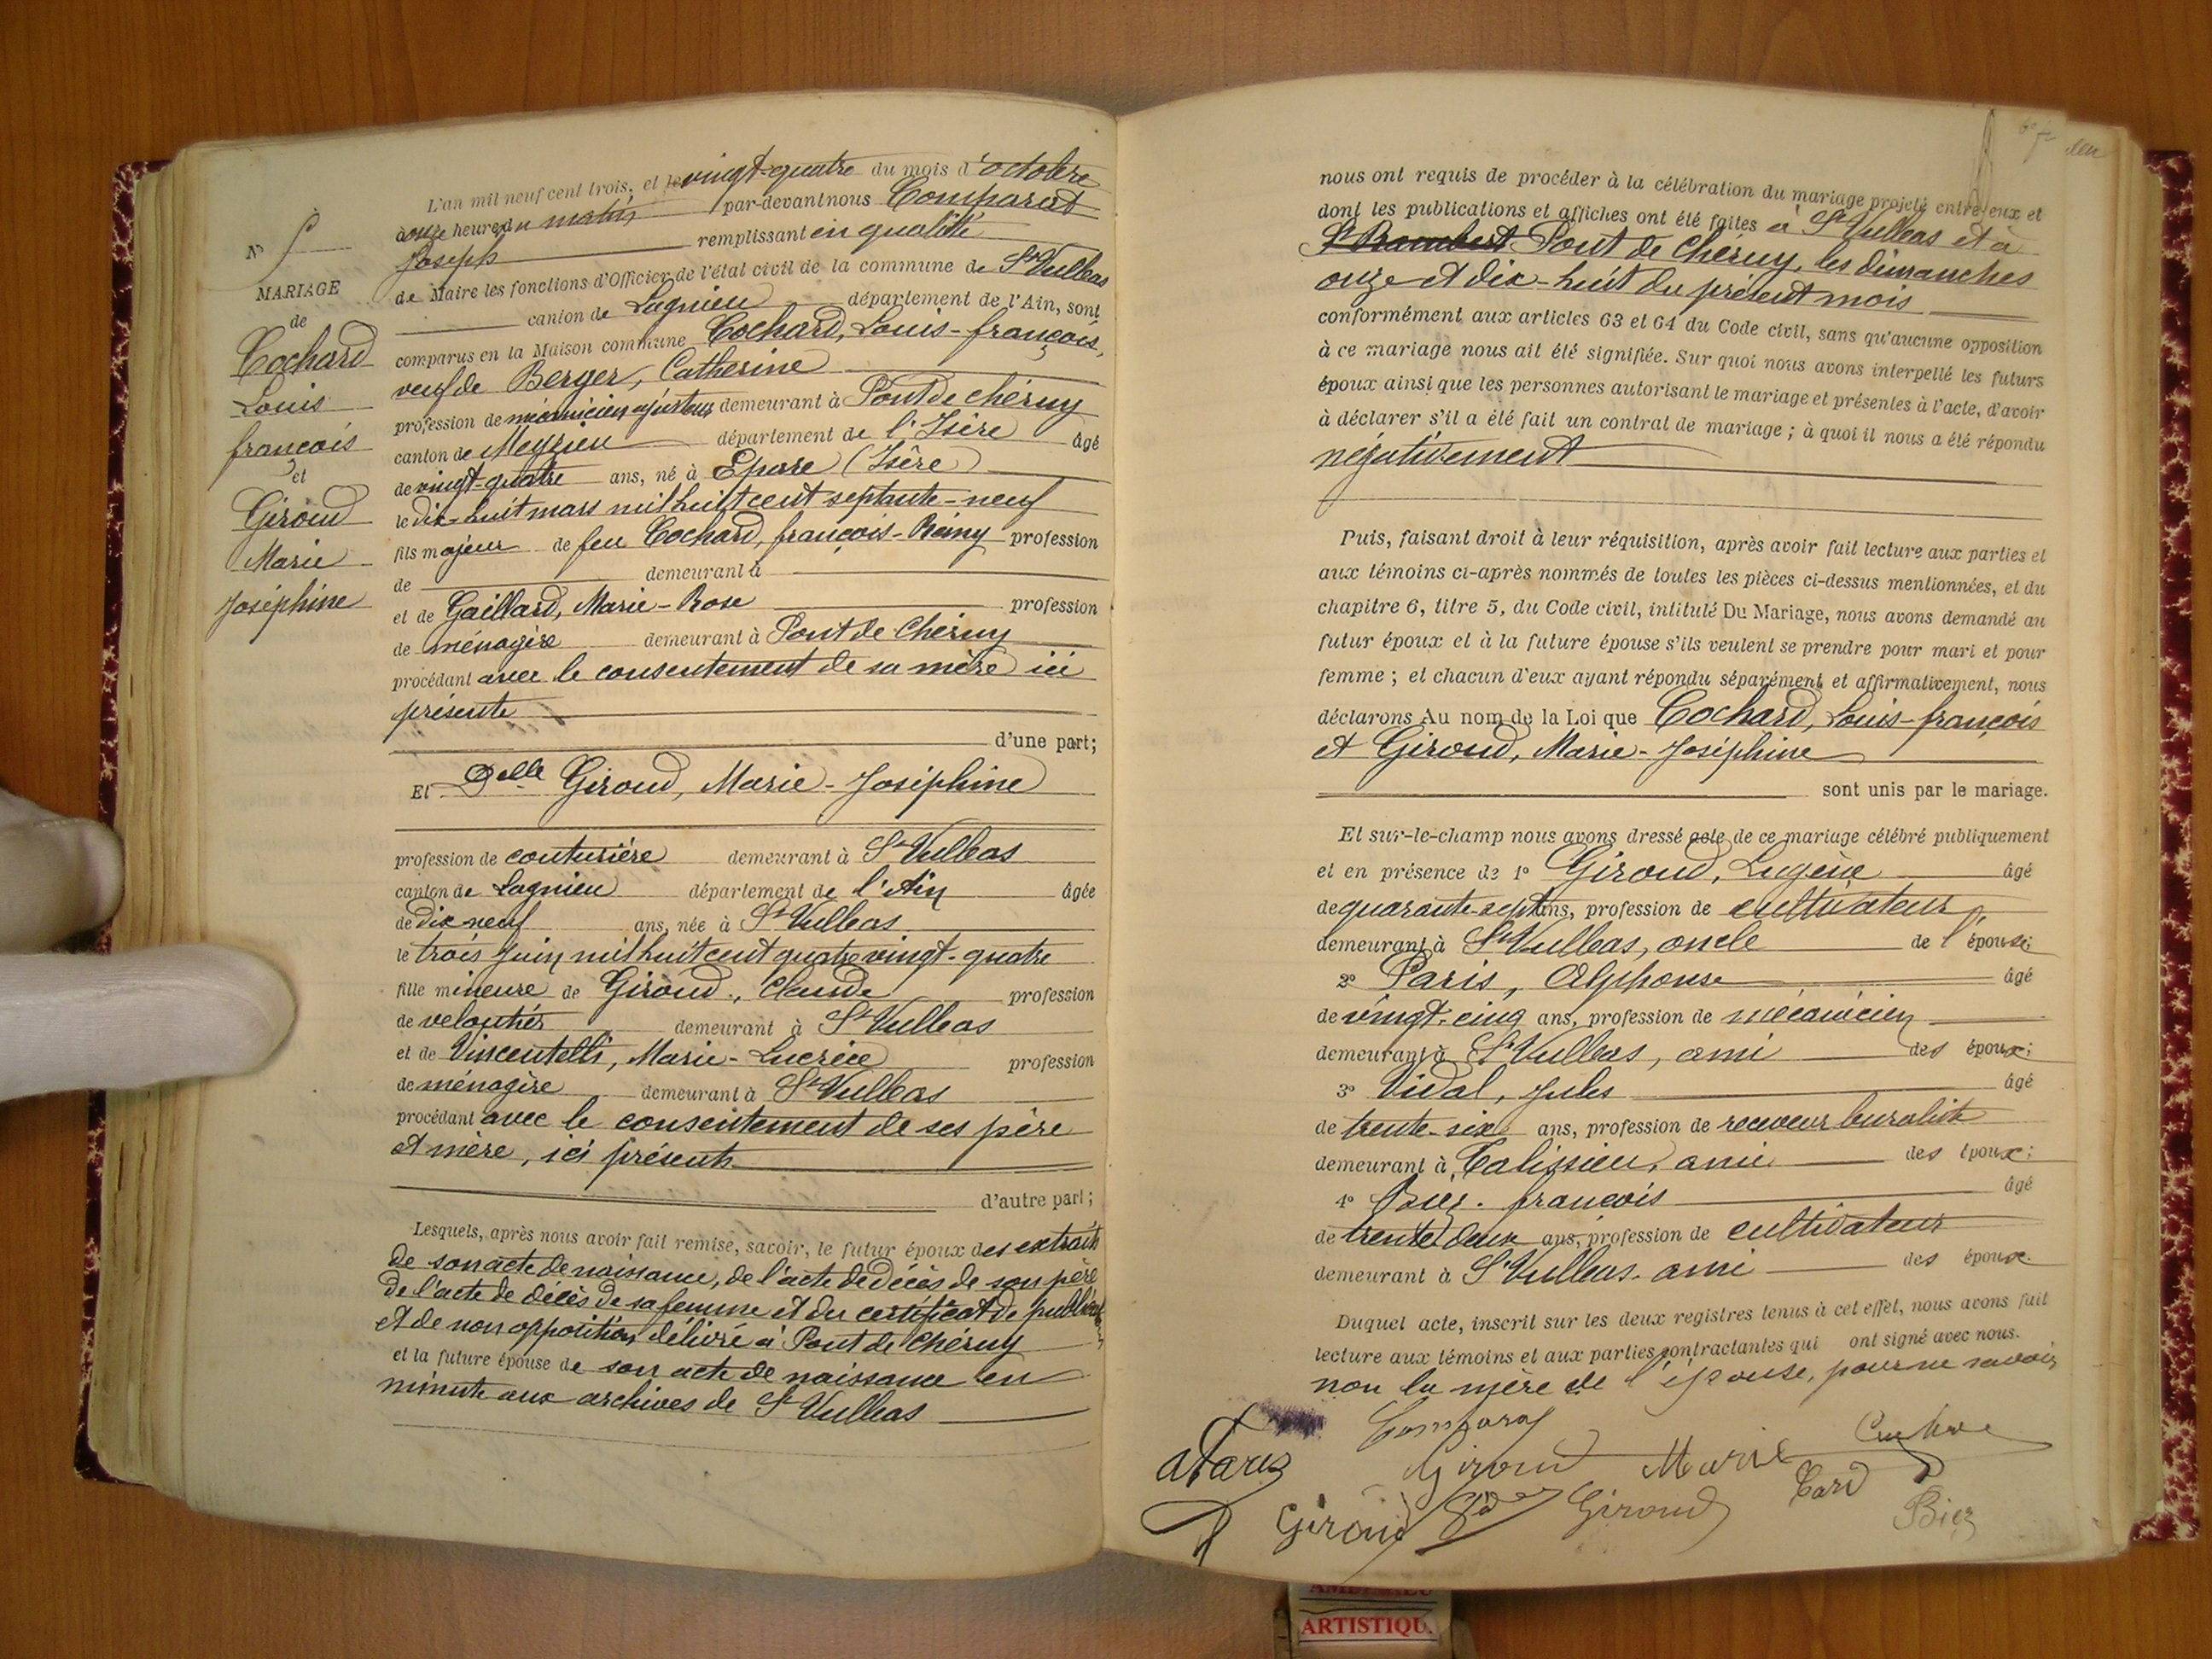 L'an mil neuf cent trois, et le vingt-quatre du mois d'octobre
à onze heures du matin par-devant nous Comparat
Joseph remplissant en qualité
de Maire les fonctions d'Officier de l'état civil de la commune de St Vulbas
canton de Lagnieu département de l'Ain, sont
comparus en la Maison commune Cochard, Louis-françois,
veuf de Berger, Catherine
profession de mécanicien ajusteur demeurant à Pont de Chéruy
canton de Meyzieu département de l'Isère âgé
de vingt-quatre ans, né à Eparre (Isère)
le dix-huit mars mil huit cent septante-neuf
fils majeur de feu Cochard, françois-Rémy profession
de demeurant à
et de Gaillard, Marie-Rose profession
de ménagère demeurant à Pont de Chéruy
procédant avec le consentement de sa mère ici
présente
d'une part;
Et Delle Giroud, Marie-Joséphine
profession de couturière demeurant à St Vulbas
canton de Lagnieu département de l'Ain âgée
de dix neuf ans, née à St Vulbas
le trois Juin mil huit cent quatre vingt-quatre
fille mineure de Giroud, Claude profession
de veloutier demeurant à St Vulbas
et de Vincentelli, Marie-Lucrèce profession
de ménagère demeurant à St Vulbas
procédant avec le consentement de ses père
et mère, ici présents
d'autre part;
Lesquels, après nous avoir fait remise, savoir, le futur époux des extraits
de son acte de naissance, de l'acte de décès de son père
de l'acte de décès de sa femme et du certificat de publication
et de non opposition, délivré à Pont de Chéruy
et la future épouse de son acte de naissance en
minute aux archives de St Vulbas
N°
MARIAGE
de
Cochard
Louis
françois
et
Giroud
Marie
Joséphine
nous ont requis de procéder à la célébration du mariage projeté entre eux et
dont les publications et affiches ont été faites à St Vulbas et à
St Rambert Pont de Chéruy, les dimanches
onze et dix-huit du présent mois
conformément aux articles 63 et 64 du Code civil, sans qu'aucune opposition
à ce mariage nous ait été signifiée. Sur quoi nous avons interpellé les futurs
époux ainsi que les personnes autorisant le mariage et présentes à l'acte, d'avoir
à déclarer s'il a été fait un contrat de mariage ; à quoi il nous a été répondu
négativement
Puis, faisant droit à leur réquisition, après avoir fait lecture aux parties et
aux témoins ci-après nommés de toutes les pièces ci-dessus mentionnées, et du
chapitre 6, titre 5, du Code civil, intitulé Du Mariage, nous avons demandé au
futur époux et à la future épouse s'ils veulent se prendre pour mari et pour
femme ; et chacun d'eux ayant répondu séparément et affirmativement, nous
déclarons Au nom de la Loi que Cochard, Louis-françois
et Giroud, Marie-Joséphine
sont unis par le mariage.
Et sur-le-champ nous avons dressé acte de ce mariage célébré publiquement
et en présence de 1° Giroud, Eugène âgé
de quarante-sept ans, profession de cultivateur
demeurant à St Vulbas, oncle de l'épouse;
2° Paris, Alphonse âgé
de vingt-cinq ans, profession de mécanicien
demeurant à St Vulbas, ami des époux;
3° Vidal, Jules âgé
de trente-six ans, profession de receveur buraliste
demeurant à Calissieu, ami des époux;
4° Biez. françois âgé
de trente deux ans, profession de cultivateur
demeurant à St Vulbas. ami des époux.
Duquel acte, inscrit sur les deux registres tenus à cet effet, nous avons fait
lecture aux témoins et aux parties contractantes qui ont signé avec nous.
non la mère de l'épouse, pour ne savoir
Comparat
aParis Giroud Marie
Giroud Giroud Biez
ARTISTIQU.